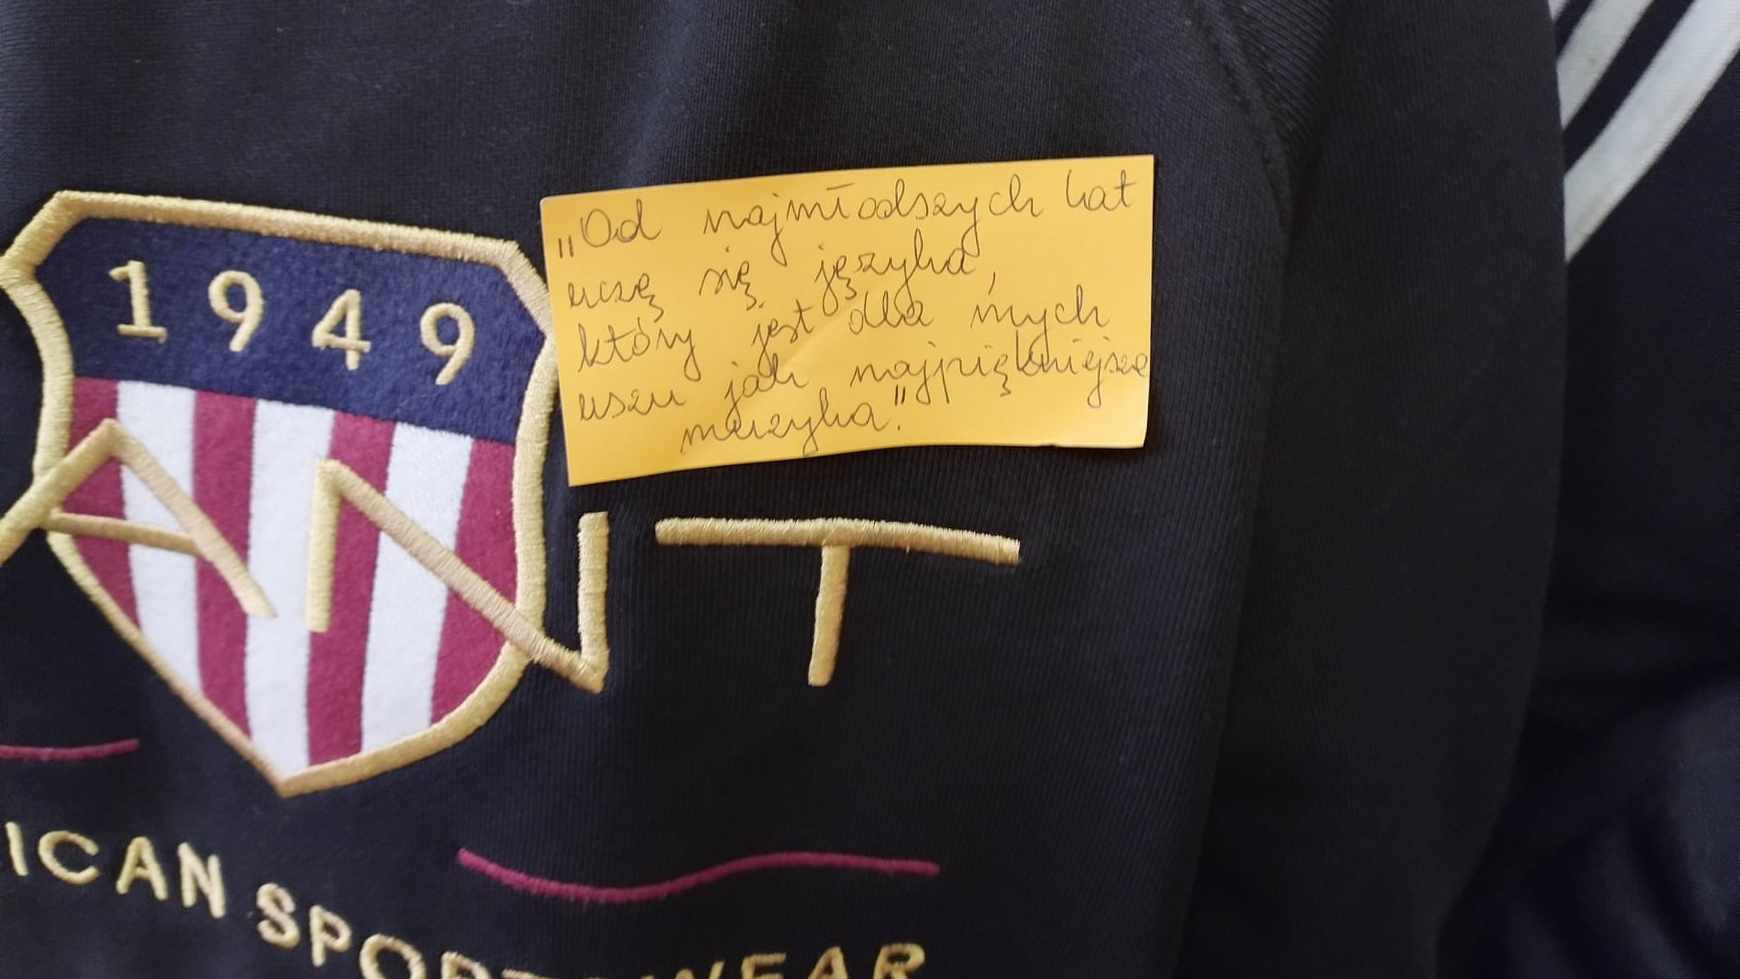 1949
„Od najmłodszych lat
uczę się języka,
który jest dla mych
uszu jak najpiękniejsza
muzyka."
ANT
ICAN SPORTSWEAR